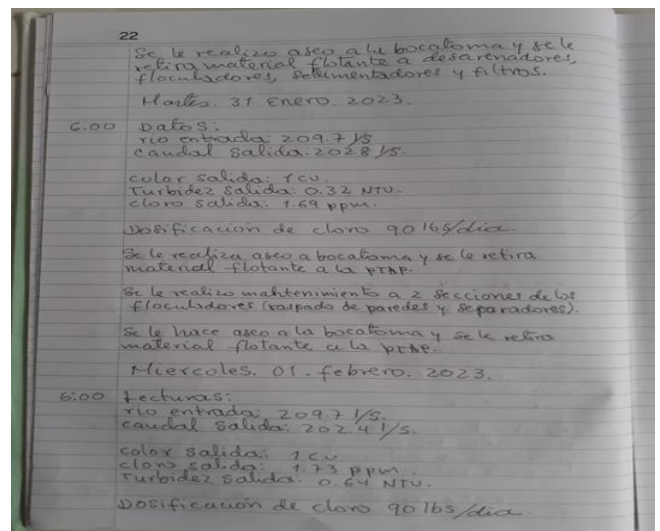 22
Se le realizo aseo a la bocatoma y se le
retira material flotante a desarenadores,
floculadores, sedimentadores y filtros.
Martes. 31 Enero. 2023.
6:00 Datos:
rio entrada: 209.7 l/s
caudal salida: 202.8 l/s.
color salida: 1 cu
Turbidez salida: 0.32 NTU.
cloro salida: 1.69 ppm.
Dosificación de cloro 90 lbs/dia.
Se le realiza aseo a bocatoma y se le retira
material flotante a la PTAP.
Se le realizo mantenimiento a 2 secciones de los
floculadores (raspado de paredes y separadores).
Se le hace aseo a la bocatoma y se le retira
material flotante a la PTAP.
Miercoles. 01. febrero. 2023.
6:00 Lecturas:
rio entrada: 209.7 l/s.
caudal salida: 202.4 l/s.
color salida: 1 cu
cloro salida: 1.73 ppm
Turbidez salida: 0.64 NTU.
Dosificación de cloro 90 lbs/dia.